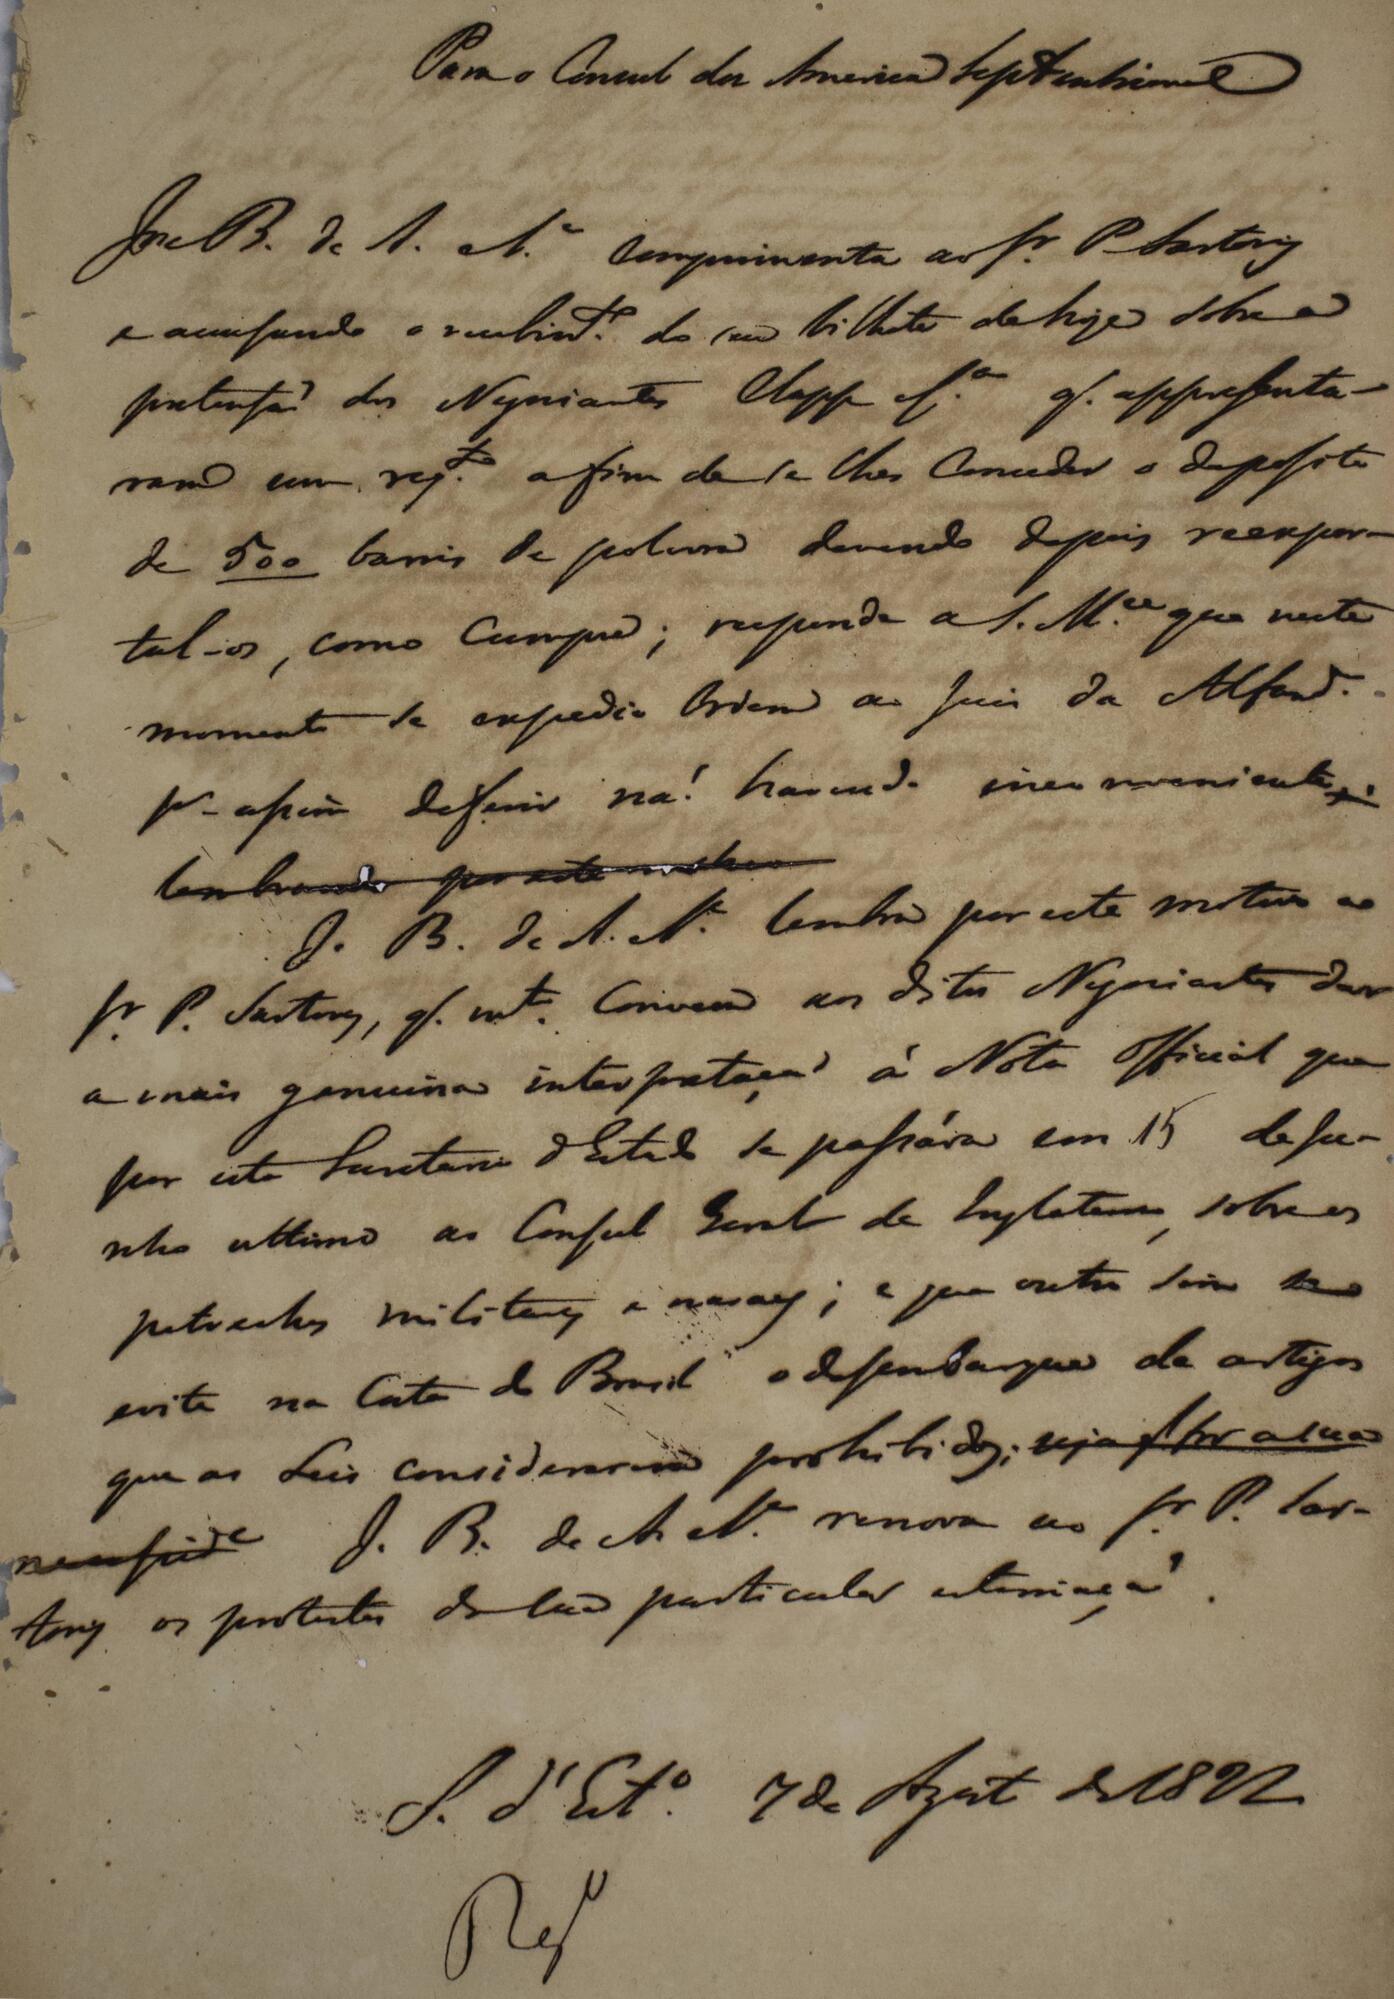 Para o Consul da America Septentrional
Joze B. de A. e A.e comprimenta ao Sr. P. Sartoris
e accusando o recebim.to do seu bilhete de hoje sobre a
pretensaõ dos Negociantes Clapp e C.a q. appresenta-
raõ um req.to afim de se lhes conceder o deposito
de 500 barris de polvora devendo depois reexpor-
tal-os, como cumpre; responde a S. M.ce que neste
momento se expedio ordem ao Juiz da Alfand.
p.a assim deferir naõ havendo inconveniente;
lembrando por este motivo
J. B. de A. e A.e lembra por este motivo ao
Sr. P. Sartoris, q. m.to convem aos ditos Negociantes dar
a mais genuina interpretaçaõ á Nota Official que
por esta Secretaria d'Estado se passára em 15 de Ju-
nho ultimo ao Consul Geral de Inglaterra, sobre os
petrechos militares e navaes; e que outro sim se
evite na Costa do Brasil o desembarque de artigos
que as Leis consideraram prohibidos; seja por a sua
J. B. de A. e A.e renova ao Sr. P. Sar-
toris os protestos da sua particular estimaçaõ.
S. d'Est.o 7 de Agosto de 1822
Reg.o